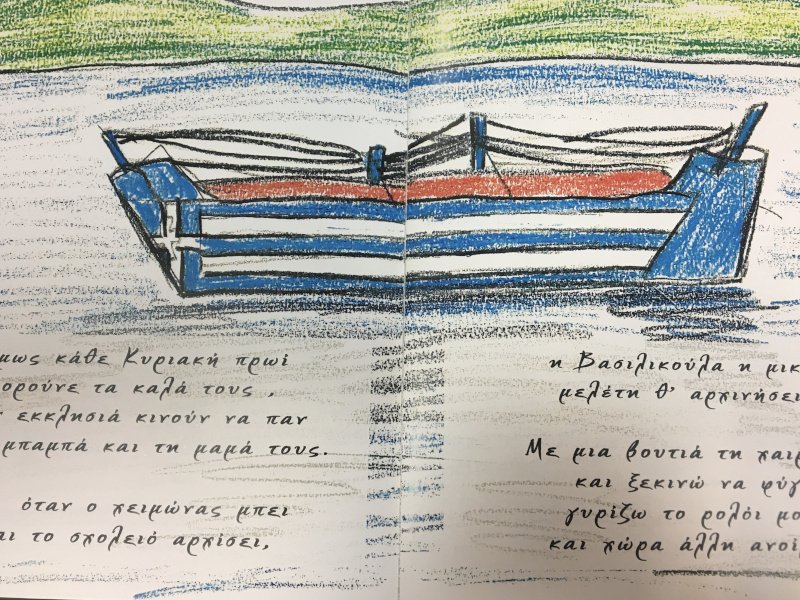 κάθε Κυριακή πρωί
τα καλά τους ,
εκκλησιά κινούν να παν
μπαμπά και τη μαμά τους.
όταν ο χειμώνας μπει
το σχολειό αρχίσει,
η Βασιλικούλα η
μελέτη θ' αρχινήσει
Με μια βουτιά τη
και ξεκινώ να
γυρίζω το ρολόι
και χώρα άλλη